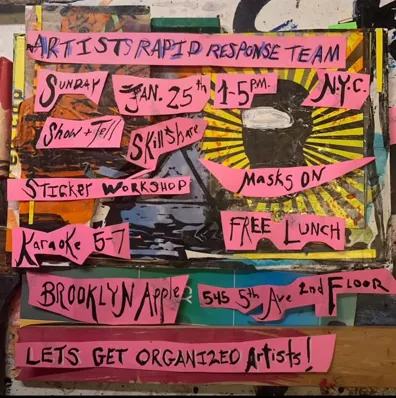 ARTISTS RAPID RESPONSE TEAM
SUNDAY JAN. 25th 1-5PM. N.Y.C.
Show + Tell SkillShare
STICKER WORKSHOP MASKS ON
KARAOKE 5-7 FREE LUNCH
BROOKLYN Apple 545 5th Ave 2nd FLOOR
LETS GET ORGANIZED Artists!